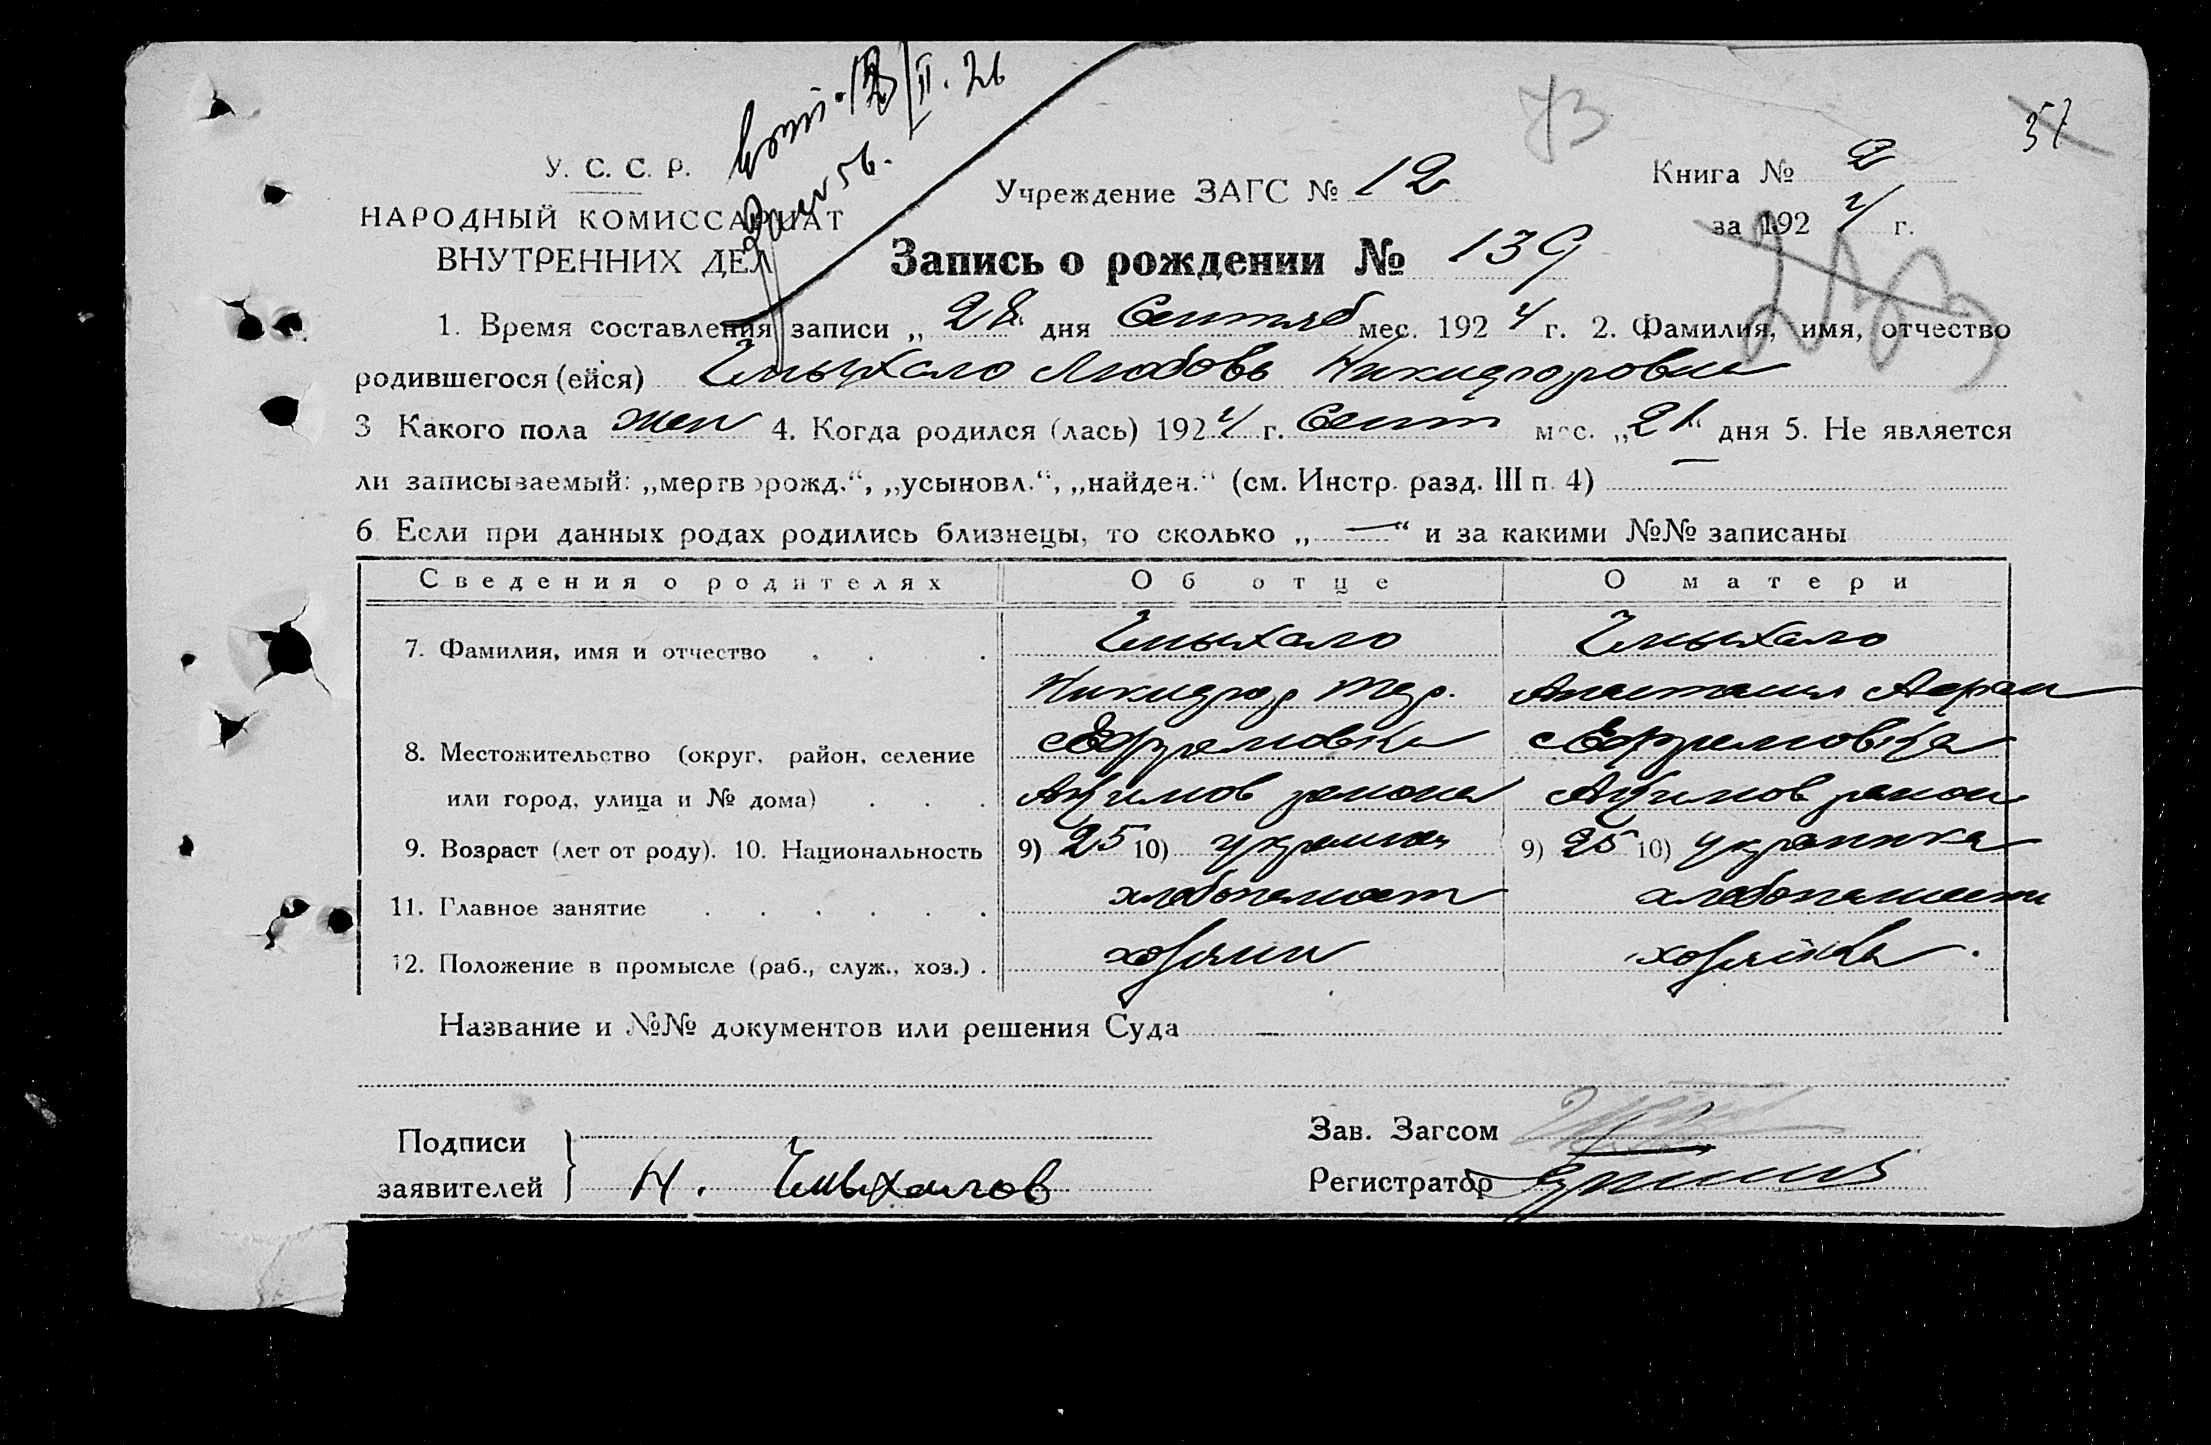 73
37
У. С. С. Р.
Учреждение ЗАГС № 12
Книга № 2
НАРОДНЫЙ КОМИССАРИАТ
за 1924 г.
ВНУТРЕННИХ ДЕЛ
Запись о рождении № 139
1. Время составления записи „28“ дня Сентяб мес. 1924 г. 2. Фамилия, имя, отчество
родившегося (ейся) Чмыхало Любовь Никидфоровна
3 Какого пола жен 4. Когда родился (лась) 1924 г. Сент мес. „21“ дня 5. Не является
ли записываемый: „мертворожд.“, „усыновл.“, „найден.“ (см. Инстр. разд. III п. 4) —
6. Если при данных родах родились близнецы, то сколько „—“ и за какими №№ записаны
Сведения о родителях Об отце О матери
7. Фамилия, имя и отчество . . . Чмыхало Чмыхало
Никидфор Анастасия
8. Местожительство (округ, район, селение с Ефремовка с Ефремовка
или город, улица и № дома) . . . Акимов района Акимов район
9. Возраст (лет от роду). 10. Национальность 9) 25 10) украинец 9) 25 10) украинка
11. Главное занятие . . . . . . хлебопашест хлебопашест
12. Положение в промысле (раб., служ., хоз.) . хозяин хозяйка.
Название и №№ документов или решения Суда —
Подписи
Зав. Загсом
заявителей Н. Чмыхалов
Регистратор